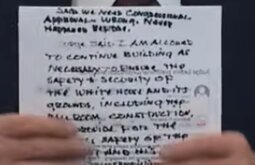 SAID WE NEED CONGRESSIONAL
APPROVAL - WRONG. NEVER
HAPPENED BEFORE.
JUDGE SAID I AM ALLOWED
TO CONTINUE BUILDING AS
NECESSARY TO ENSURE THE
SAFETY & SECURITY OF
THE WHITE HOUSE AND ITS
GROUNDS, INCLUDING THE
BALLROOM CONSTRUCTION,
PROVIDE FOR THE
SAFETY OF THE
AND HIS